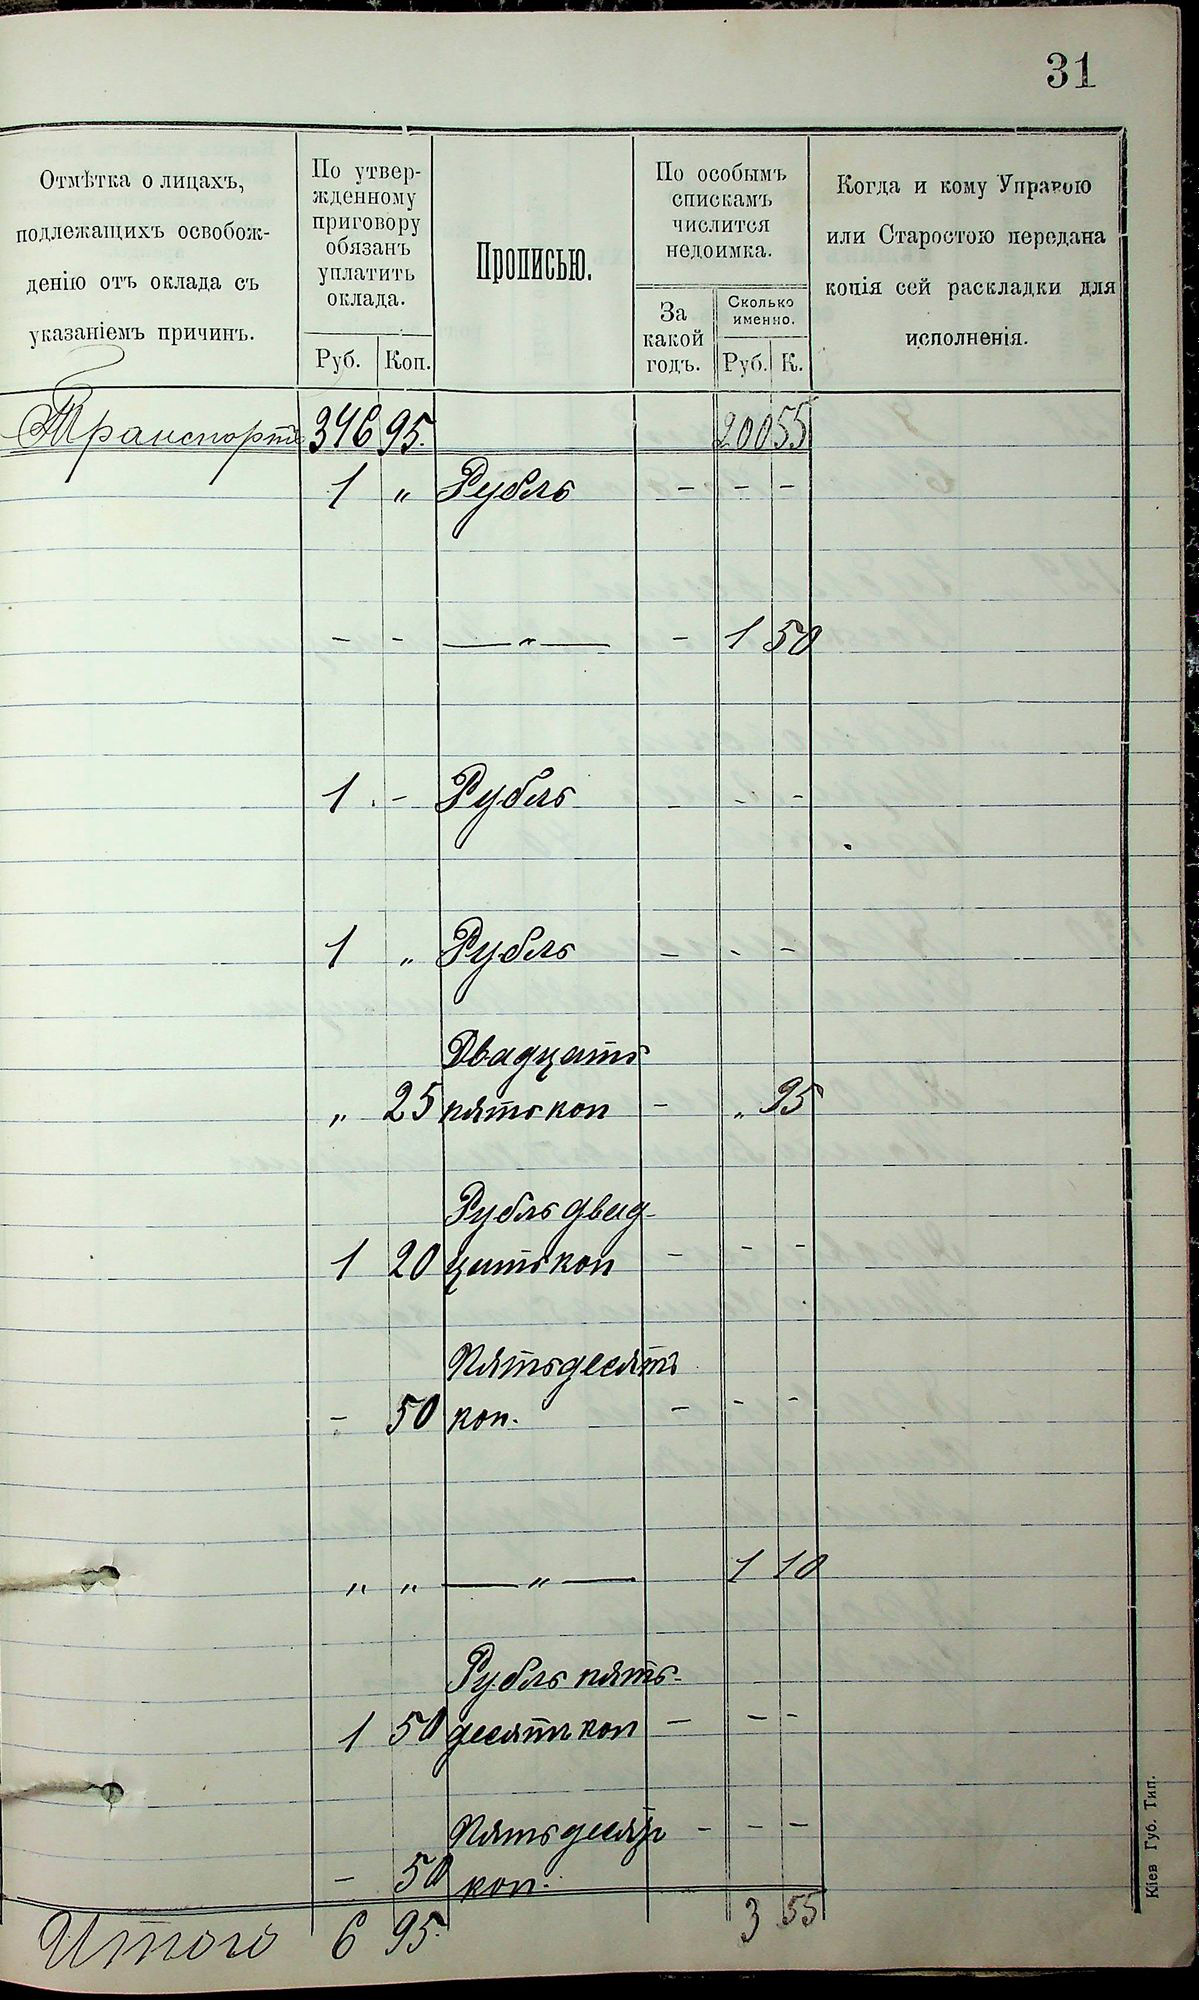 31
Отмѣтка о лицахъ,
подлежащихъ освобож-
денію отъ оклада съ
указаніемъ причинъ.
По утвер-
жденному
приговору
обязанъ
уплатить
оклада.
Руб. Коп.
Прописью.
По особымъ
спискамъ
числится
недоимка.
За
какой
годъ.
Сколько
именно.
Руб. К.
Когда и кому Управою
или Старостою передана
копія сей раскладки для
исполненія.
Транспортъ 346 95. 200 55
1 „ Рубль - - -
- - —„— - 1 50
1 - Рубль - - -
1 „ Рубль - - -
Двадцать
„ 25 пять коп - „ 95
Рубль двад-
1 20 цать коп - - -
Пятьдесятъ
- 50 коп. - - -
„ „ —„— 1 10
Рубль пять-
1 50 десятъ коп - - -
Пятьдесятъ - - -
- 50 коп.
Итого 6 95. 3 55
Кіев Губ. Тип.